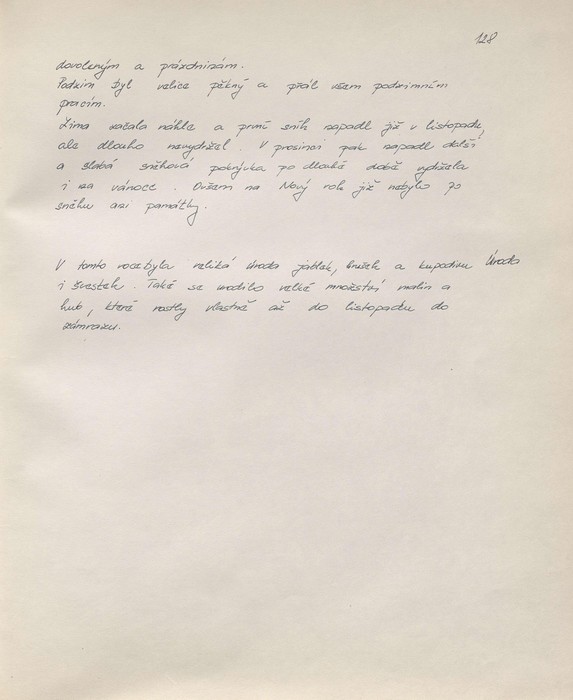 128
dovoleným a prázdninám.
Podzim byl velice pěkný a přál všem podzimním
pracím.
Zima začala náhle a první sníh napadl již v listopadu,
ale dlouho nevydržel. V prosinci pak napadl další
a slabá sněhová pokrývka po dlouhé době vydržela
i na vánoce. Ovšem na Nový rok již nebylo po
sněhu ani památky.
V tomto roce byla veliká úroda jablek, hrušek a kupodivu Úroda
i švestek. Také se urodilo velké množství malin a
hub, které rostly vlastně až do listopadu do
zámrazu.